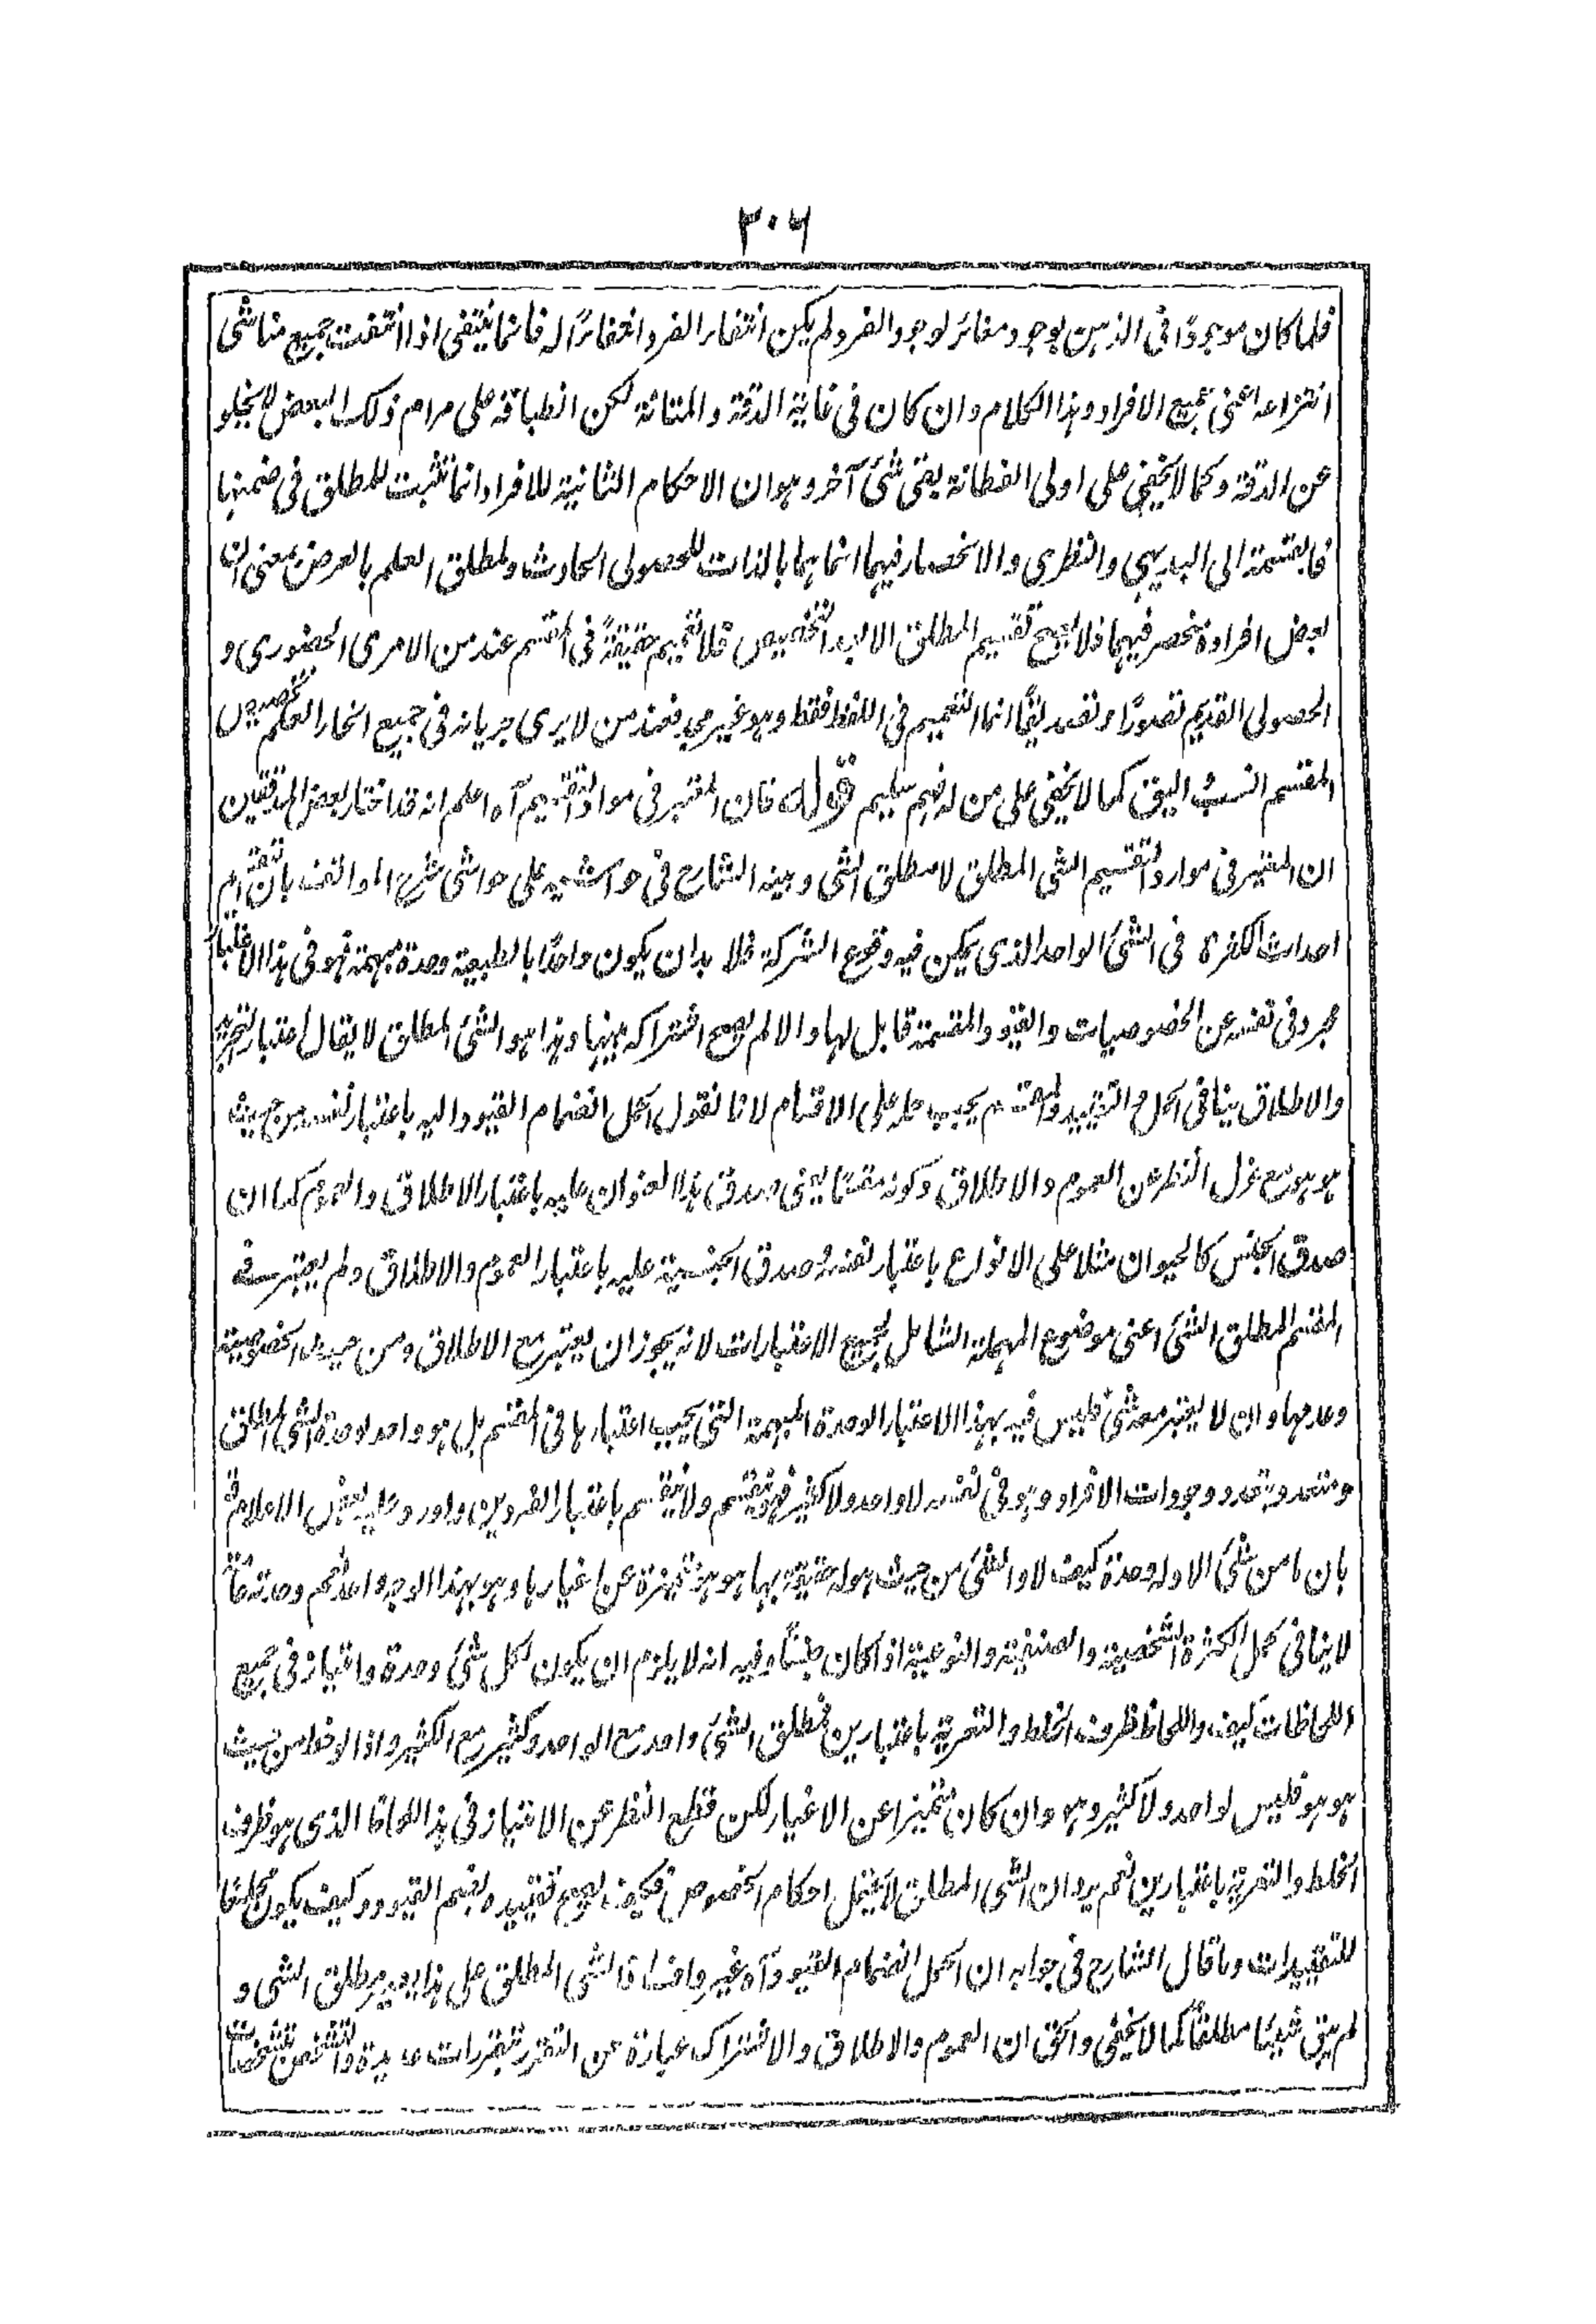 ٣٠٦
فلما كان موجودا فى الذهن بوجود مغائر لوجود الفرد لم يكن انتفاء الفرد انتفاءً له فانما ينتفى اذا انتفت جميع مناشى
انتزاعه اعنى جميع الافراد وهذا الكلام وان كان فى غاية الدقة والمتانة لكن انطباقه على مرام ذلك البعض لا يخلو
عن الدقة وكما لا يخفى على اولى الفطانة بقى شئ آخر وهو ان الاحكام الثانية للافراد انما تثبت للمطلق فى ضمنها
فالقسمة الى البديهى والنظرى والانحصار فيهما انما هما بالذات للحصولى الحادث ولمطلق العلم بالعرض بمعنى ان
بعض افراده منحصر فيهما فلا يصح تقسيم المطلق الا بعد التخصيص فلا تعميم حقيقةً فى المقسم عند من لا يرى الحضورى و
الحصولى القديم تصورًا وتصديقًا انما التعميم فى اللفظ فقط وهو غير مجد فعند من لا يرى جريانه فى جميع انحاء العلم تخصيص
المقسم انسب واليق كما لا يخفى على من له فهم سليم قوله فان المعتبر فى موارد التقسيم آه اعلم انه قد اختار بعض المدققين
ان المعتبر فى موارد التقسيم الشئ المطلق لا مطلق الشئ وبينه الشارح فى حواشيه على حواشى شرح المواقف بان التقسيم
احداث الكثرة فى الشئ الواحد الذى يمكن فيه وقوع الشركة فلا بد ان يكون واحدًا بالطبيعة وحدة مبهمة فهو فى هذا الاعتبار
مجرد فى نفسه عن الخصوصيات والقيود المقسمة قابل لها والا لم يصح اشتراكه بينها وهذا هو الشئ المطلق لا يقال اعتبار التجريد
والاطلاق ينافى الحمل والتقييد والمقسم يجب حمله على الاقسام لانا نقول الحمل انضمام القيود اليه باعتبار نفسه من حيث
هو هو مع عزل النظر عن العموم والاطلاق وكونه مقسمًا يعنى صدق هذا العنوان عليه باعتبار الاطلاق والعموم كما ان
صدق الجنس كالحيوان مثلا على الانواع باعتبار نفسه وصدق الجنسية عليه باعتبار العموم والاطلاق ولم يعتبر فى
المقسم المطلق الشئ اعنى موضوع المهملة الشامل لجميع الاعتبارات لانه يجوز ان يعتبر مع الاطلاق ومن حيث الخصوصية
وعدمها وان لا يعتبر معه شئ فليس فيه بهذا الاعتبار الوحدة المبهمة التى يجب اعتبارها فى المقسم بل هو واحد لوحدة الشئ المطلق
ومتعدد بتعدد وجودات الافراد وهو فى نفسه لا واحد ولا كثير فهو منقسم ولا منقسم باعتبار الفردين واورد عليه بعض الاعلام
بان ما من شئ الا وله وحدة كيف لا والشئ من حيث هو له حقيقة بها هو هو متميزة عن اغيارها وهو بهذا الوجه واحد نعم وحدته
لا ينافى حمل الكثرة الشخصية والصنفية والنوعية اذا كان جنسًا وفيه انه لا يلزم ان يكون لكل شئ وحدة وامتياز فى جميع
اللحاظات كيف واللحاظ ظرف الخلط والتعرية باعتبارين فمطلق الشئ واحد مع الواحد وكثير مع الكثير واذا لوحظ من حيث
هو هو فليس لواحد ولا كثير وهو وان كان متميزا عن الاغيار لكن قطع النظر عن الامتياز فى هذا اللحاظ الذى هو ظرف
الخلط والتعرية باعتبارين نعم يرد ان الشئ المطلق لا يحتمل احكام الخصوص فكيف يصح تقييده بضم القيود وكيف يكون مجامعًا
للتقييدات وما قال الشارح فى جوابه ان الحمل انضمام القيود آه غير واف اذ الشئ المطلق على هذا يصير مطلق الشئ و
لم يبق شيئًا مطلقًا كما لا يخفى والحق ان العموم والاطلاق والاشتراك عبارة عن التقرر بتقررات عديدة والتشخص بتشخصات